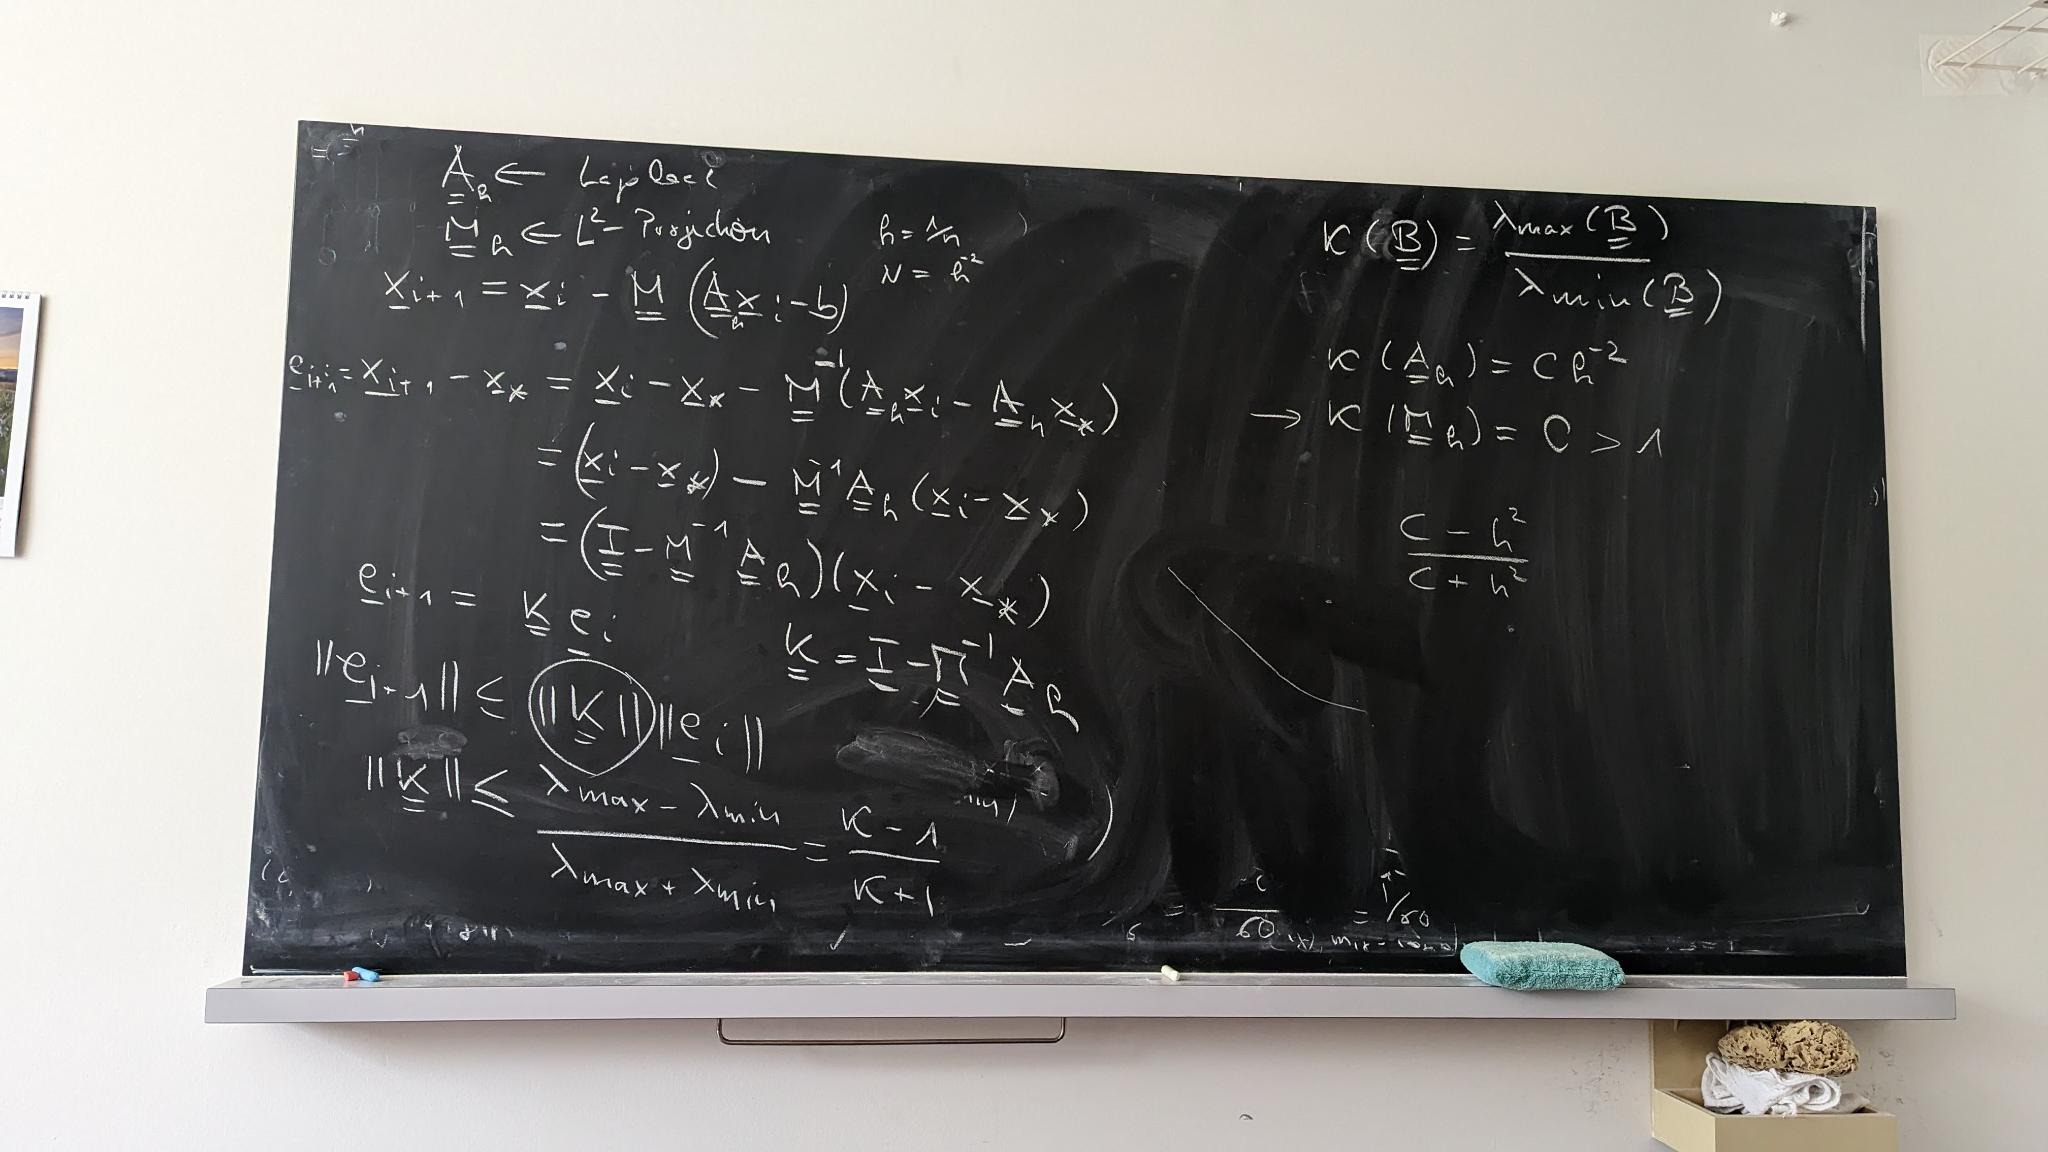 A_h ← Laplace
M_h ← L² - Projektion
h = 1/n
N = h^{-2}
x_{i+1} = x_i - M (A_h x_i - b)
e_{i+1} = x_{i+1} - x_* = x_i - x_* - M^{-1} (A_h x_i - A_h x_*)
= (x_i - x_*) - M^{-1} A_h (x_i - x_*)
= (I - M^{-1} A_h)(x_i - x_*)
e_{i+1} = K e_i
K = I - M^{-1} A_h
||e_{i+1}|| ≤ ||K|| ||e_i||
||K|| ≤ \frac{λ_{max} - λ_{min}}{λ_{max} + λ_{min}} = \frac{κ - 1}{κ + 1}
κ(B) = \frac{λ_{max}(B)}{λ_{min}(B)}
κ(A_h) = C h^{-2}
→ κ(M_h) = C > 1
\frac{C - h²}{C + h²}